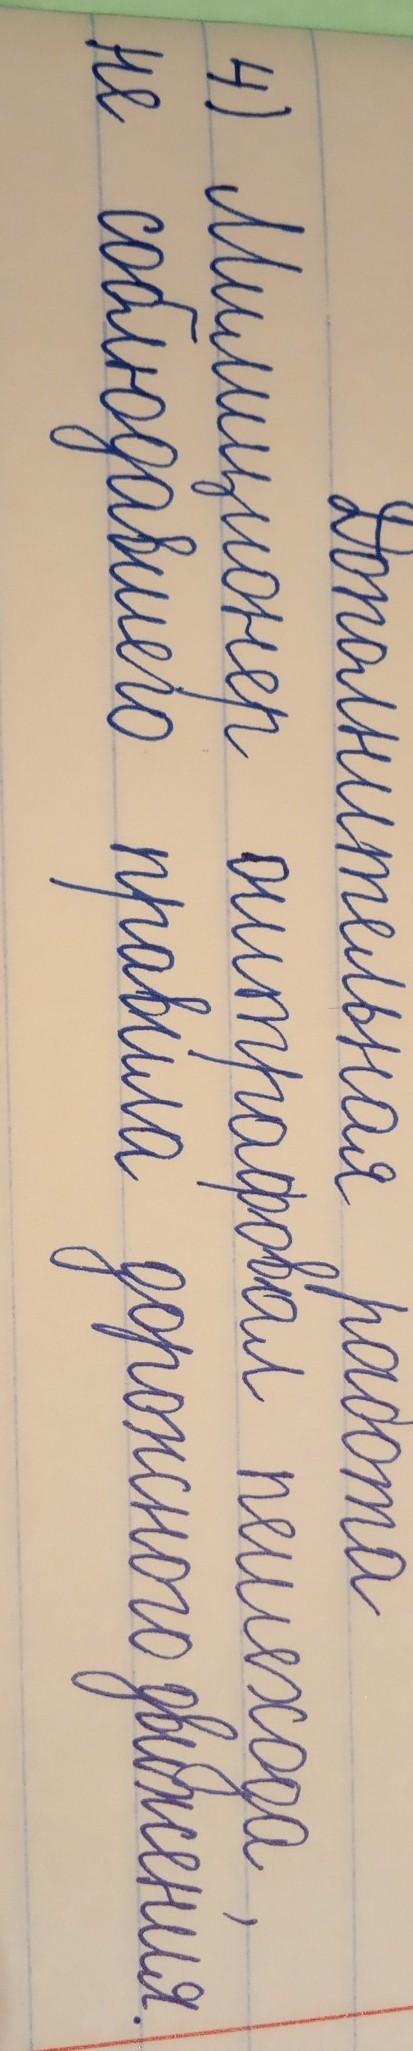 Дополнительная работа
4) Милиционер оштрафовал пешехода,
не соблюдавшего правила дорожного движения.